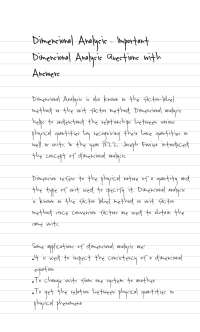 Dimensional Analysis - Important
Dimensional Analysis Questions with
Answers
Dimensional Analysis is also known as the factor-label
method or the unit factor method. Dimensional analysis
helps to understand the relationships between various
physical quantities by recognizing their base quantities as
well as units. In the year 1822, Joseph Fourier introduced
the concept of dimensional analysis.
Dimension refers to the physical nature of a quantity and
the type of unit used to specify it. Dimensional analysis
is known as the factor label method or unit factor
method since conversion factors are used to obtain the
same units.
Some applications of dimensional analysis are:
It is used to inspect the consistency of a dimensional
equation
To change units from one system to another
To get the relation between physical quantities in
physical phenomena